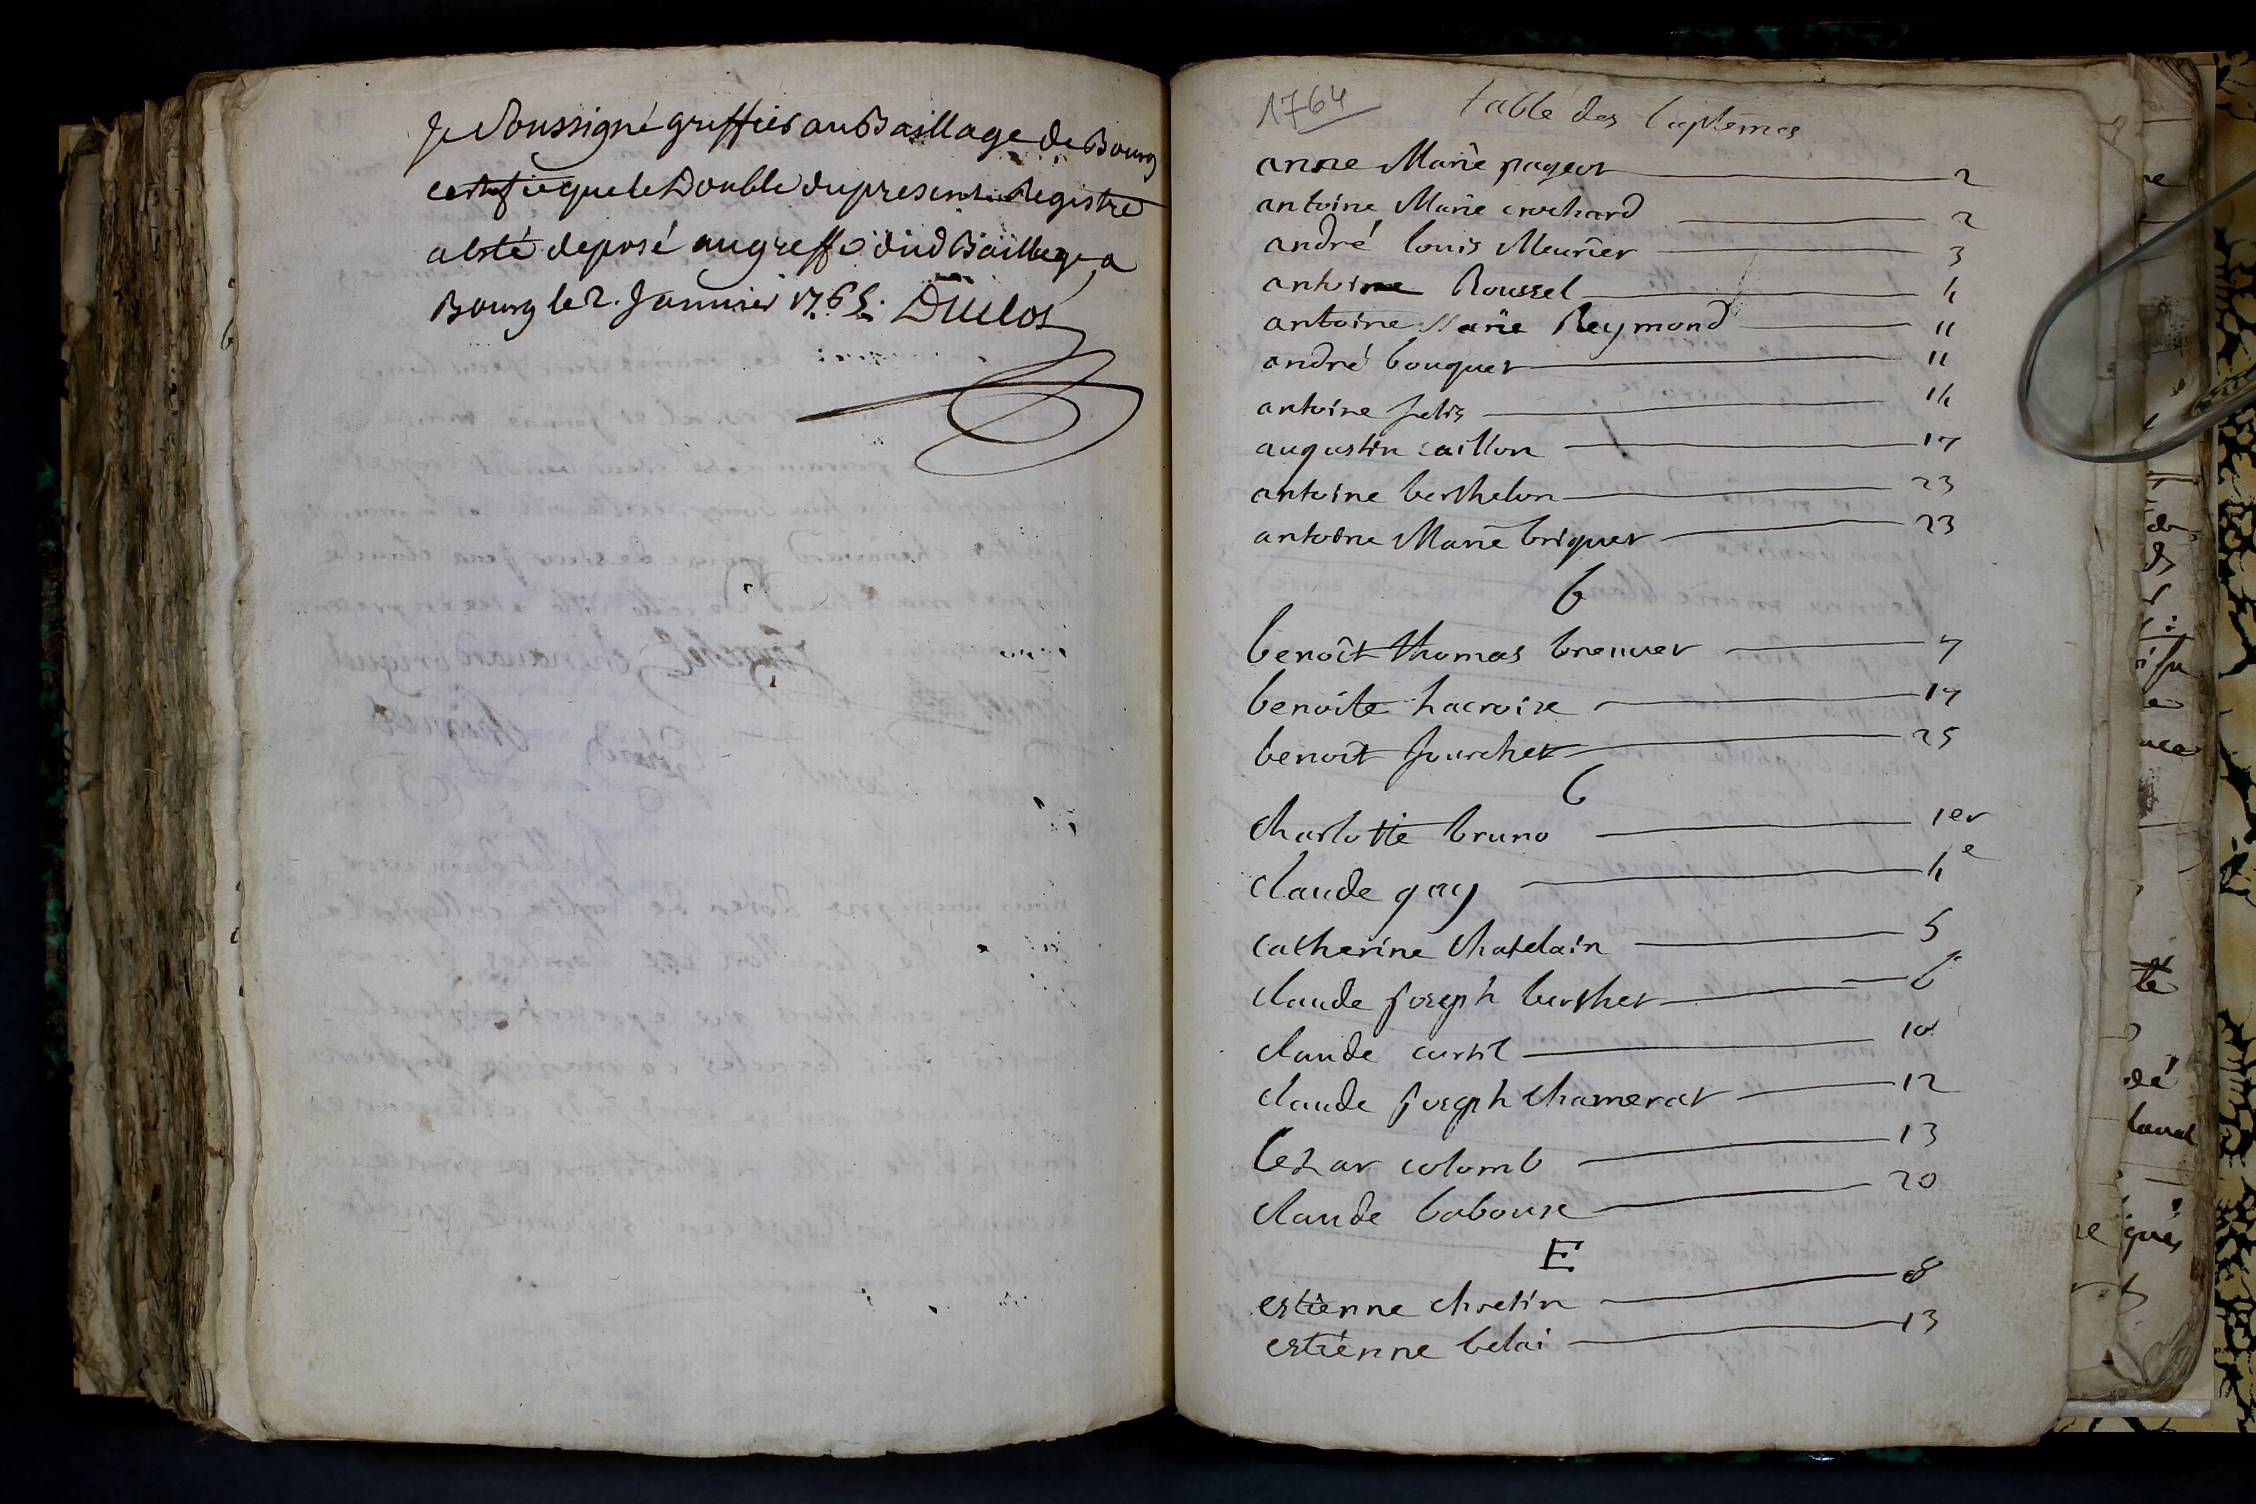 Je Soussigné greffier au Baillage de Bourg
certifie que le Double du present Registre
a êté deposé au greffe dud Baillage a
Bourg le 2. Janvier 1765. Duclos
1764
table des baptêmes
anne Marie pageot 2
antoine Marie crochard 2
andré louis Meurier 3
antoine Roussel 4
antoine Marie Reymond 11
andré bouquet 11
antoine felix 14
augustin caillon 17
antoine berthelon 23
antoine Marie briquet 23
b
benoît thomas brevvet 7
benoîte lacroix 17
benoît fourchet 25
C
charlotte bruno 1er
claude gay 4e
catherine chatelain 5
claude joseph berthet 6
claude curtil 10
claude joseph chamerat 12
Cezar colomb 13
claude baboux 20
E
estienne chretin 8
estienne belai 13